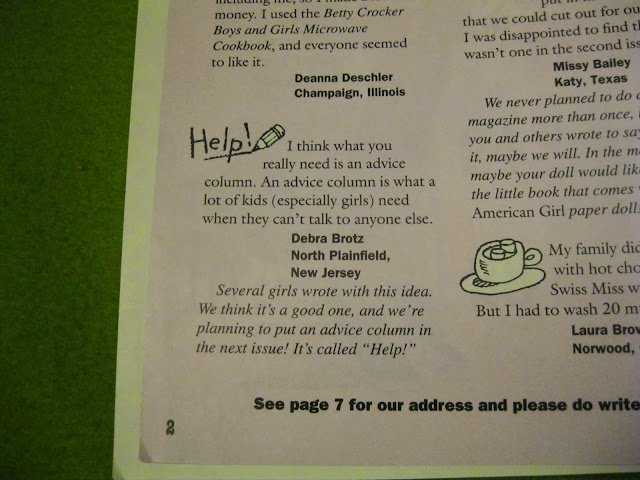 including me, so I made
money. I used the Betty Crocker
Boys and Girls Microwave
Cookbook, and everyone seemed
to like it.
Deanna Deschler
Champaign, Illinois
Help!
I think what you
really need is an advice
column. An advice column is what a
lot of kids (especially girls) need
when they can't talk to anyone else.
Debra Brotz
North Plainfield,
New Jersey
Several girls wrote with this idea.
We think it's a good one, and we're
planning to put an advice column in
the next issue! It's called "Help!"
put in
that we could cut out for ou
I was disappointed to find th
wasn't one in the second iss
Missy Bailey
Katy, Texas
We never planned to do a
magazine more than once,
you and others wrote to say
it, maybe we will. In the m
maybe your doll would lik
the little book that comes
American Girl paper doll
My family did
with hot cho
Swiss Miss w
But I had to wash 20 m
Laura Brow
Norwood,
See page 7 for our address and please do write
2